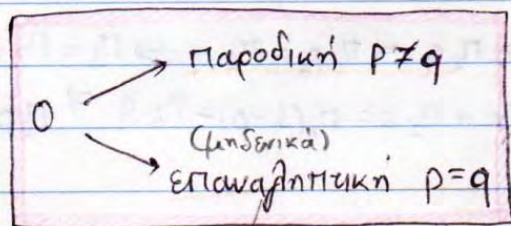 παροδική p≠q
0
(μηδενικά)
επαναληπτική p=q